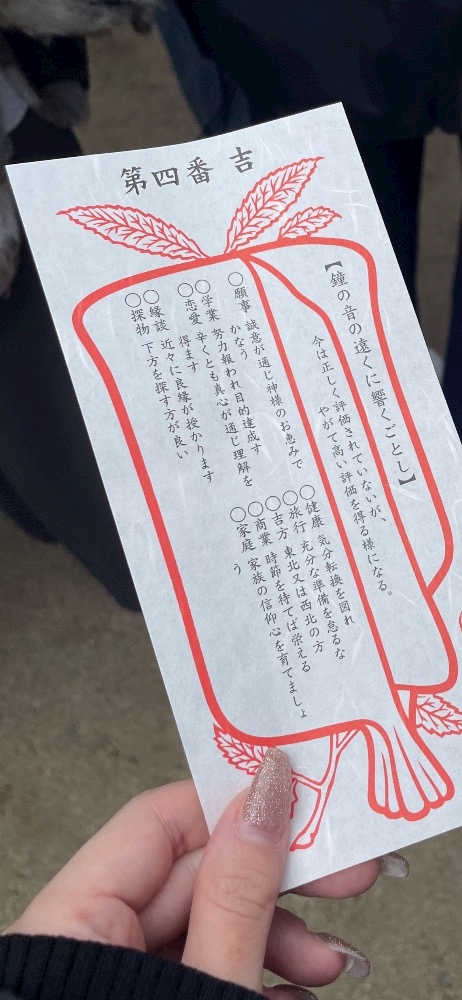 第四番 吉
【鐘の音の遠くに響くごとし】
今は正しく評価されていないが、
やがて高い評価を得る様になる。
○願事 誠意が通じ神様のお恵みで
かなう
○学業 努力報われ目的達成す
○恋愛 辛くとも真心が通じ理解を
得ます
○縁談 近々に良縁が授かります
○探物 下方を探す方が良い
○健康 気分転換を図れ
○旅行 充分な準備を怠るな
○吉方 東北又は西北の方
○商業 時節を待てば栄える
○家庭 家族の信仰心を育てましょ
う